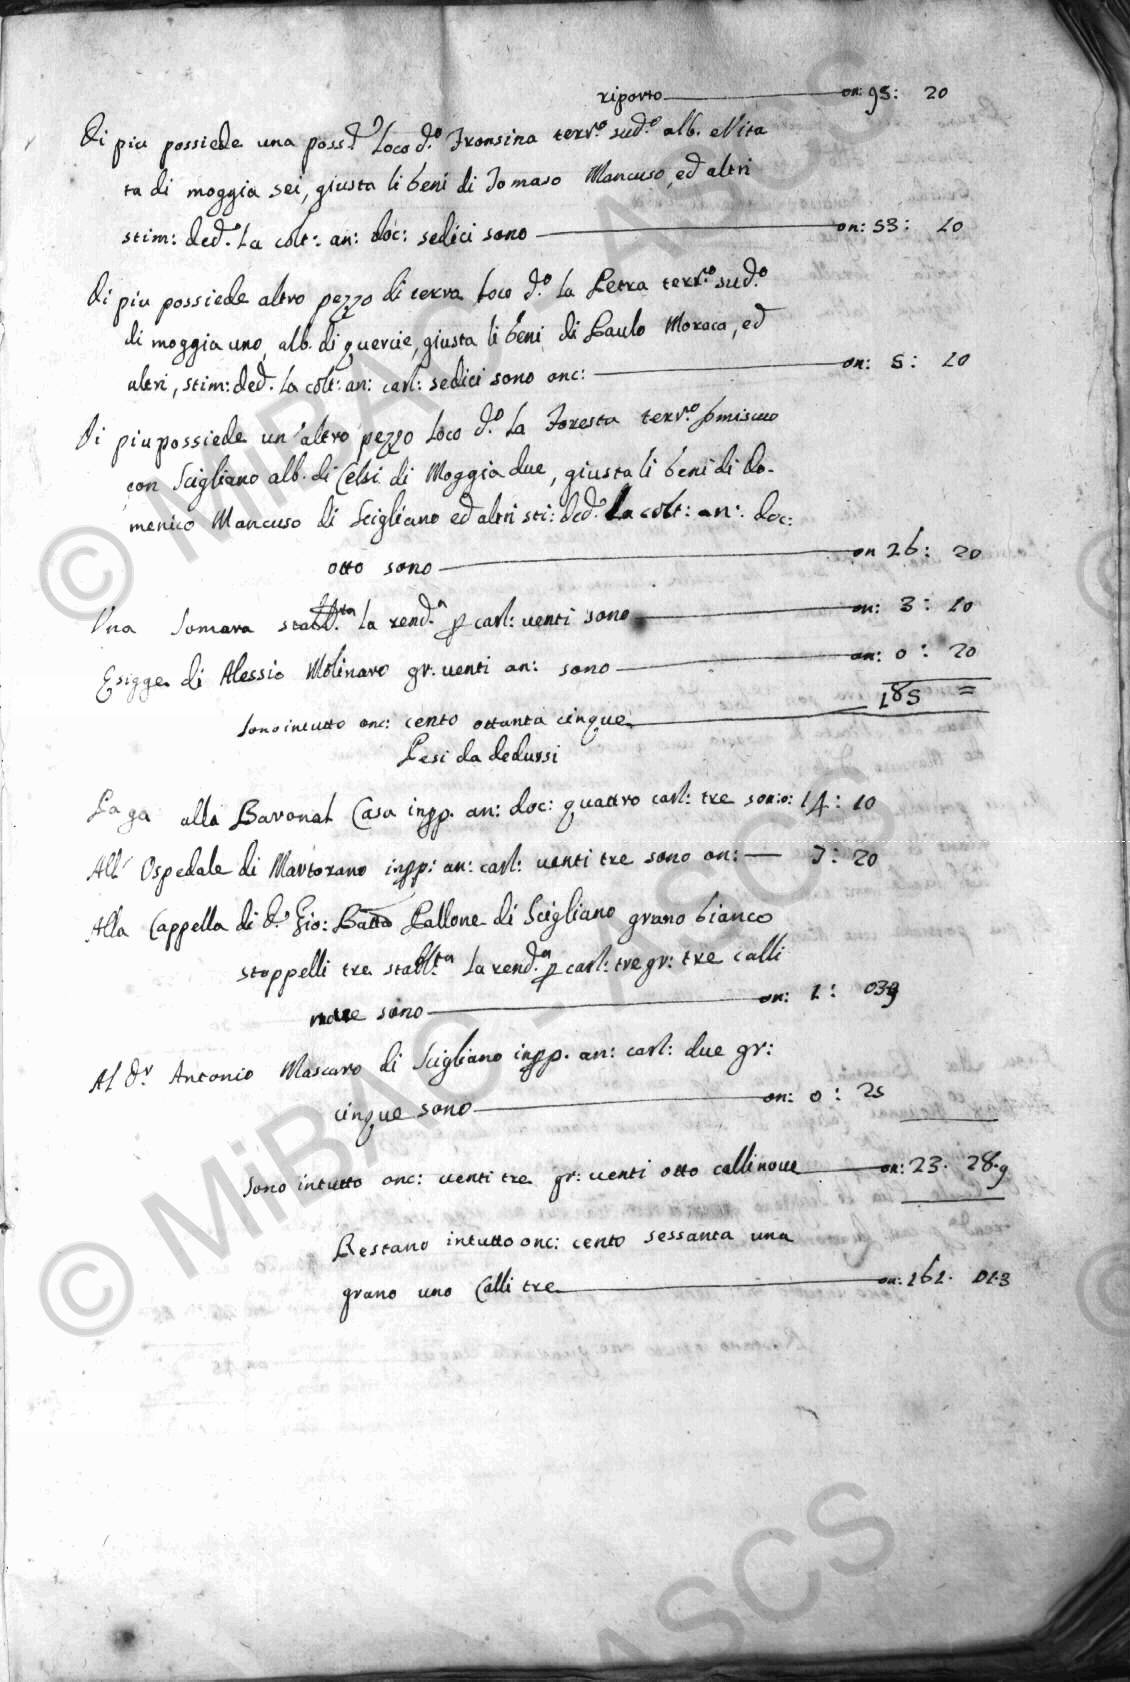 riporto on: 95: 20
Di piu possiede una poss.e Loco d.o Fronsina terr.o sud.o alb. e Vita
ta di moggia sei, giusta li beni di Tomaso Mancuso, ed altri
stim: ded.a La colt: an: doc: sedici sono on: 53: 10
Di piu possiede altro pezzo di terra Loco d.o La Petra terr.o sud.o
di moggia uno, alb. di quercie, giusta li beni di Paulo Moraca, ed
altri, stim: ded.a La colt: an: carl: sedici sono onc: on: 5: 10
Di piu possiede un'altro pezzo Loco d.o La Foresta terr.o promiscuo
con Scigliano alb. di Celsi di Moggia due, giusta li beni di Do-
menico Mancuso di Scigliano ed altri sti: ded.a La colt: an: doc:
otto sono on 26: 20
Una Somara stabil.ta La rend.a p carl: venti sono on: 3: 10
Esigge di Alessio Molinaro gr. venti an: sono on: 0: 20
Sono in tutto onc: cento ottanta cinque 185 =
Pesi da dedursi
Paga alla Baronal Casa in pp. an: doc: quattro carl: tre son: o: 14: 10
All' Ospedale di Martorano in pp: an: carl: venti tre sono on: 7: 20
Alla Cappella di d. Gio: Batta Pallone di Scigliano grano bianco
stoppelli tre stabil.ta La rend.a p carl: tre gr: tre calli
nove sono on: 1: 03 9
Al d.r Antonio Mascaro di Scigliano in pp. an: carl: due gr:
cinque sono on: 0: 25
Sono in tutto onc: venti tre gr: venti otto calli nove on: 23. 28. 9
Restano in tutto onc: cento sessanta una
grano uno Calli tre on: 161. 01. 3
© MiBAC - ASCS
© MiBAC - ASCS
ASCS